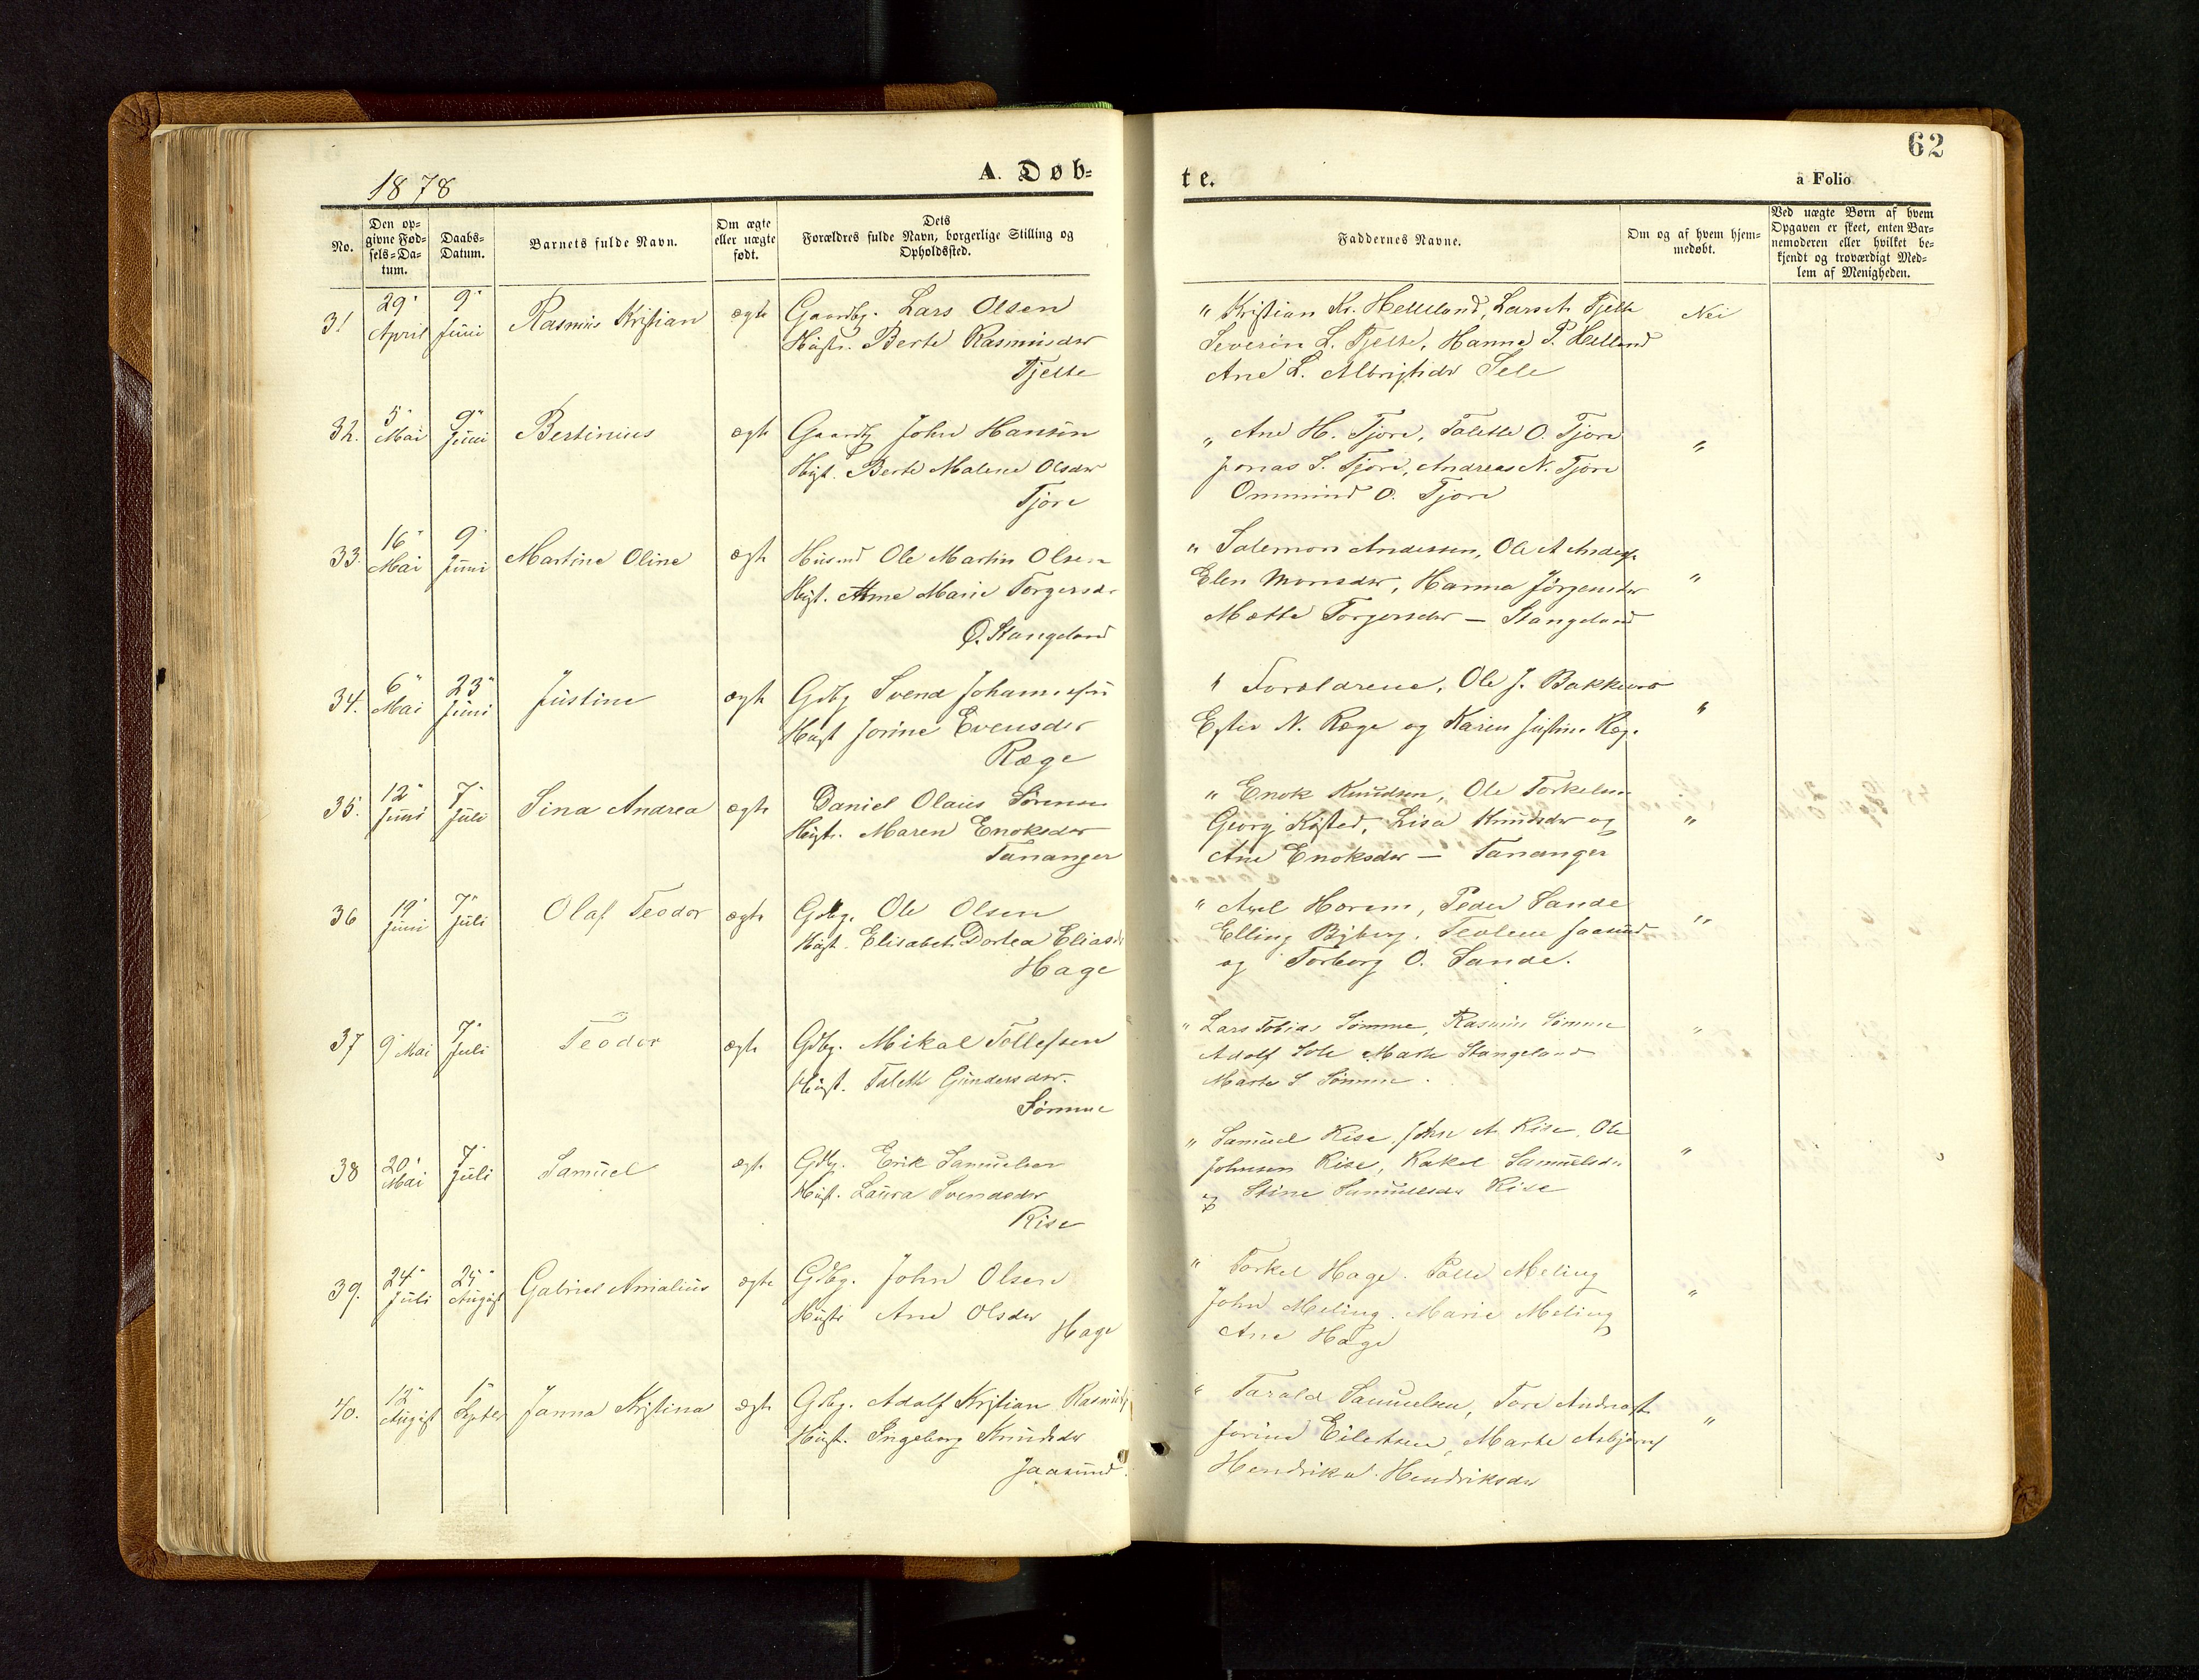 62
1878
A. Døb-
te.
a Folio
No.
Den op-
givne Fød-
sels-Da-
tum.
Daabs-
Datum.
Barnets fulde Navn.
Om ægte
eller uægte
født.
Dets
Forældres fulde Navn, borgerlige Stilling og
Opholdssted.
Faddernes Navne.
Om og af hvem hjem-
medøbt.
Ved uægte Børn af hvem
Opgaven er skeet, enten Bar-
nemoderen eller hvilket be-
kjendt og troværdigt Med-
lem af Menigheden.
31 29 April 9 Juni Rasmus Kristian ægte Gaardbr. Lars Olsen
Hustr. Berte Rasmusdtr
Tjelte
" Kristian Kr. Helleland, Lars Tjelte
Severin L. Tjelte, Hanna P. Helland
Ane L. Sele
Nei
32. 5 Mai 9 Juni Bertinius ægte Gaardbr John Hansen
Hust. Berte Malene Olsdtr
Tjore
" Ane H. Tjore, Talette O. Tjore
Jonas S. Tjore, Andreas N. Tjore
Ommund O. Tjore
"
33. 16 Mai 9 Juni Martine Oline ægte Husmd Ole Martin Olsen
Hust. Anne Marie Torgersdr
Ø. Stangeland
" Salemon Andersen, Ole A Anders
Elen Monsdtr, Hanna Jørgensdtr
Mette Torgersdtr — Stangeland
"
34. 6 Mai 23 Juni Justine ægte Gdbr Svend Johannessen
Hust Jorine Evensdtr
Ræge
" Forældrene, Ole J. Bakkevro
Ester N. Ræge og Karen Justine Ræge
"
35. 12 Juni 7 Juli Sina Andrea ægte Daniel Olaus Sørensen
Hust. Maren Enoksdtr
Tananger
" Enok Knudsen, Ole Torkelsen
Georg Kisted, Lisa Knudsdtr og
Ane Enoksdtr — Tananger
"
36 19 Juni 7 Juli Olaf Teodor ægte Gdbr. Ole Olsen
Hust. Elisabet Dortea Eliasdr
Hage
" Axel Horem, Peder Sande
Elling Byberg, Teoline Jaasund
og Torborg O. Sande.
"
37 9 Mai 7 Juli Teodor ægte Gdbr. Mikal Tollefsen
Hust. Talette Gundersdtr.
Sømme
" Lars Tobias Sømme, Rasmus Sømme
Adolf Sole Marte Stangeland
Marte S Sømme.
"
38 20 Mai 7 Juli Samuel ægte Gdbr. Erik Samuelsen
Hust. Laura Svendsdtr
Rise
" Samuel Rise, John A. Rise, Ole
Johnsen Rise, Rakel Samuelsdr
og Stine Samuelsdtr Rise
"
39. 24 Juli 25 August Gabriel Amalius ægte Gdbr. John Olsen
Hustr Ane Olsdtr
Hage
" Torkel Hage. Tolle Meling
John Meling. Marie Meling
Ane Hage
"
40. 12 August 1 Septbr Janna Kristina ægte Gdbr. Adolf Kristian Rasmuss
Hust. Ingeborg Knudsdtr
Jaasund.
" Tarald Samuelsen, Tore
Jorine Eilertsen, Marte Asbjørns
Hendrika Hendriksdtr
"